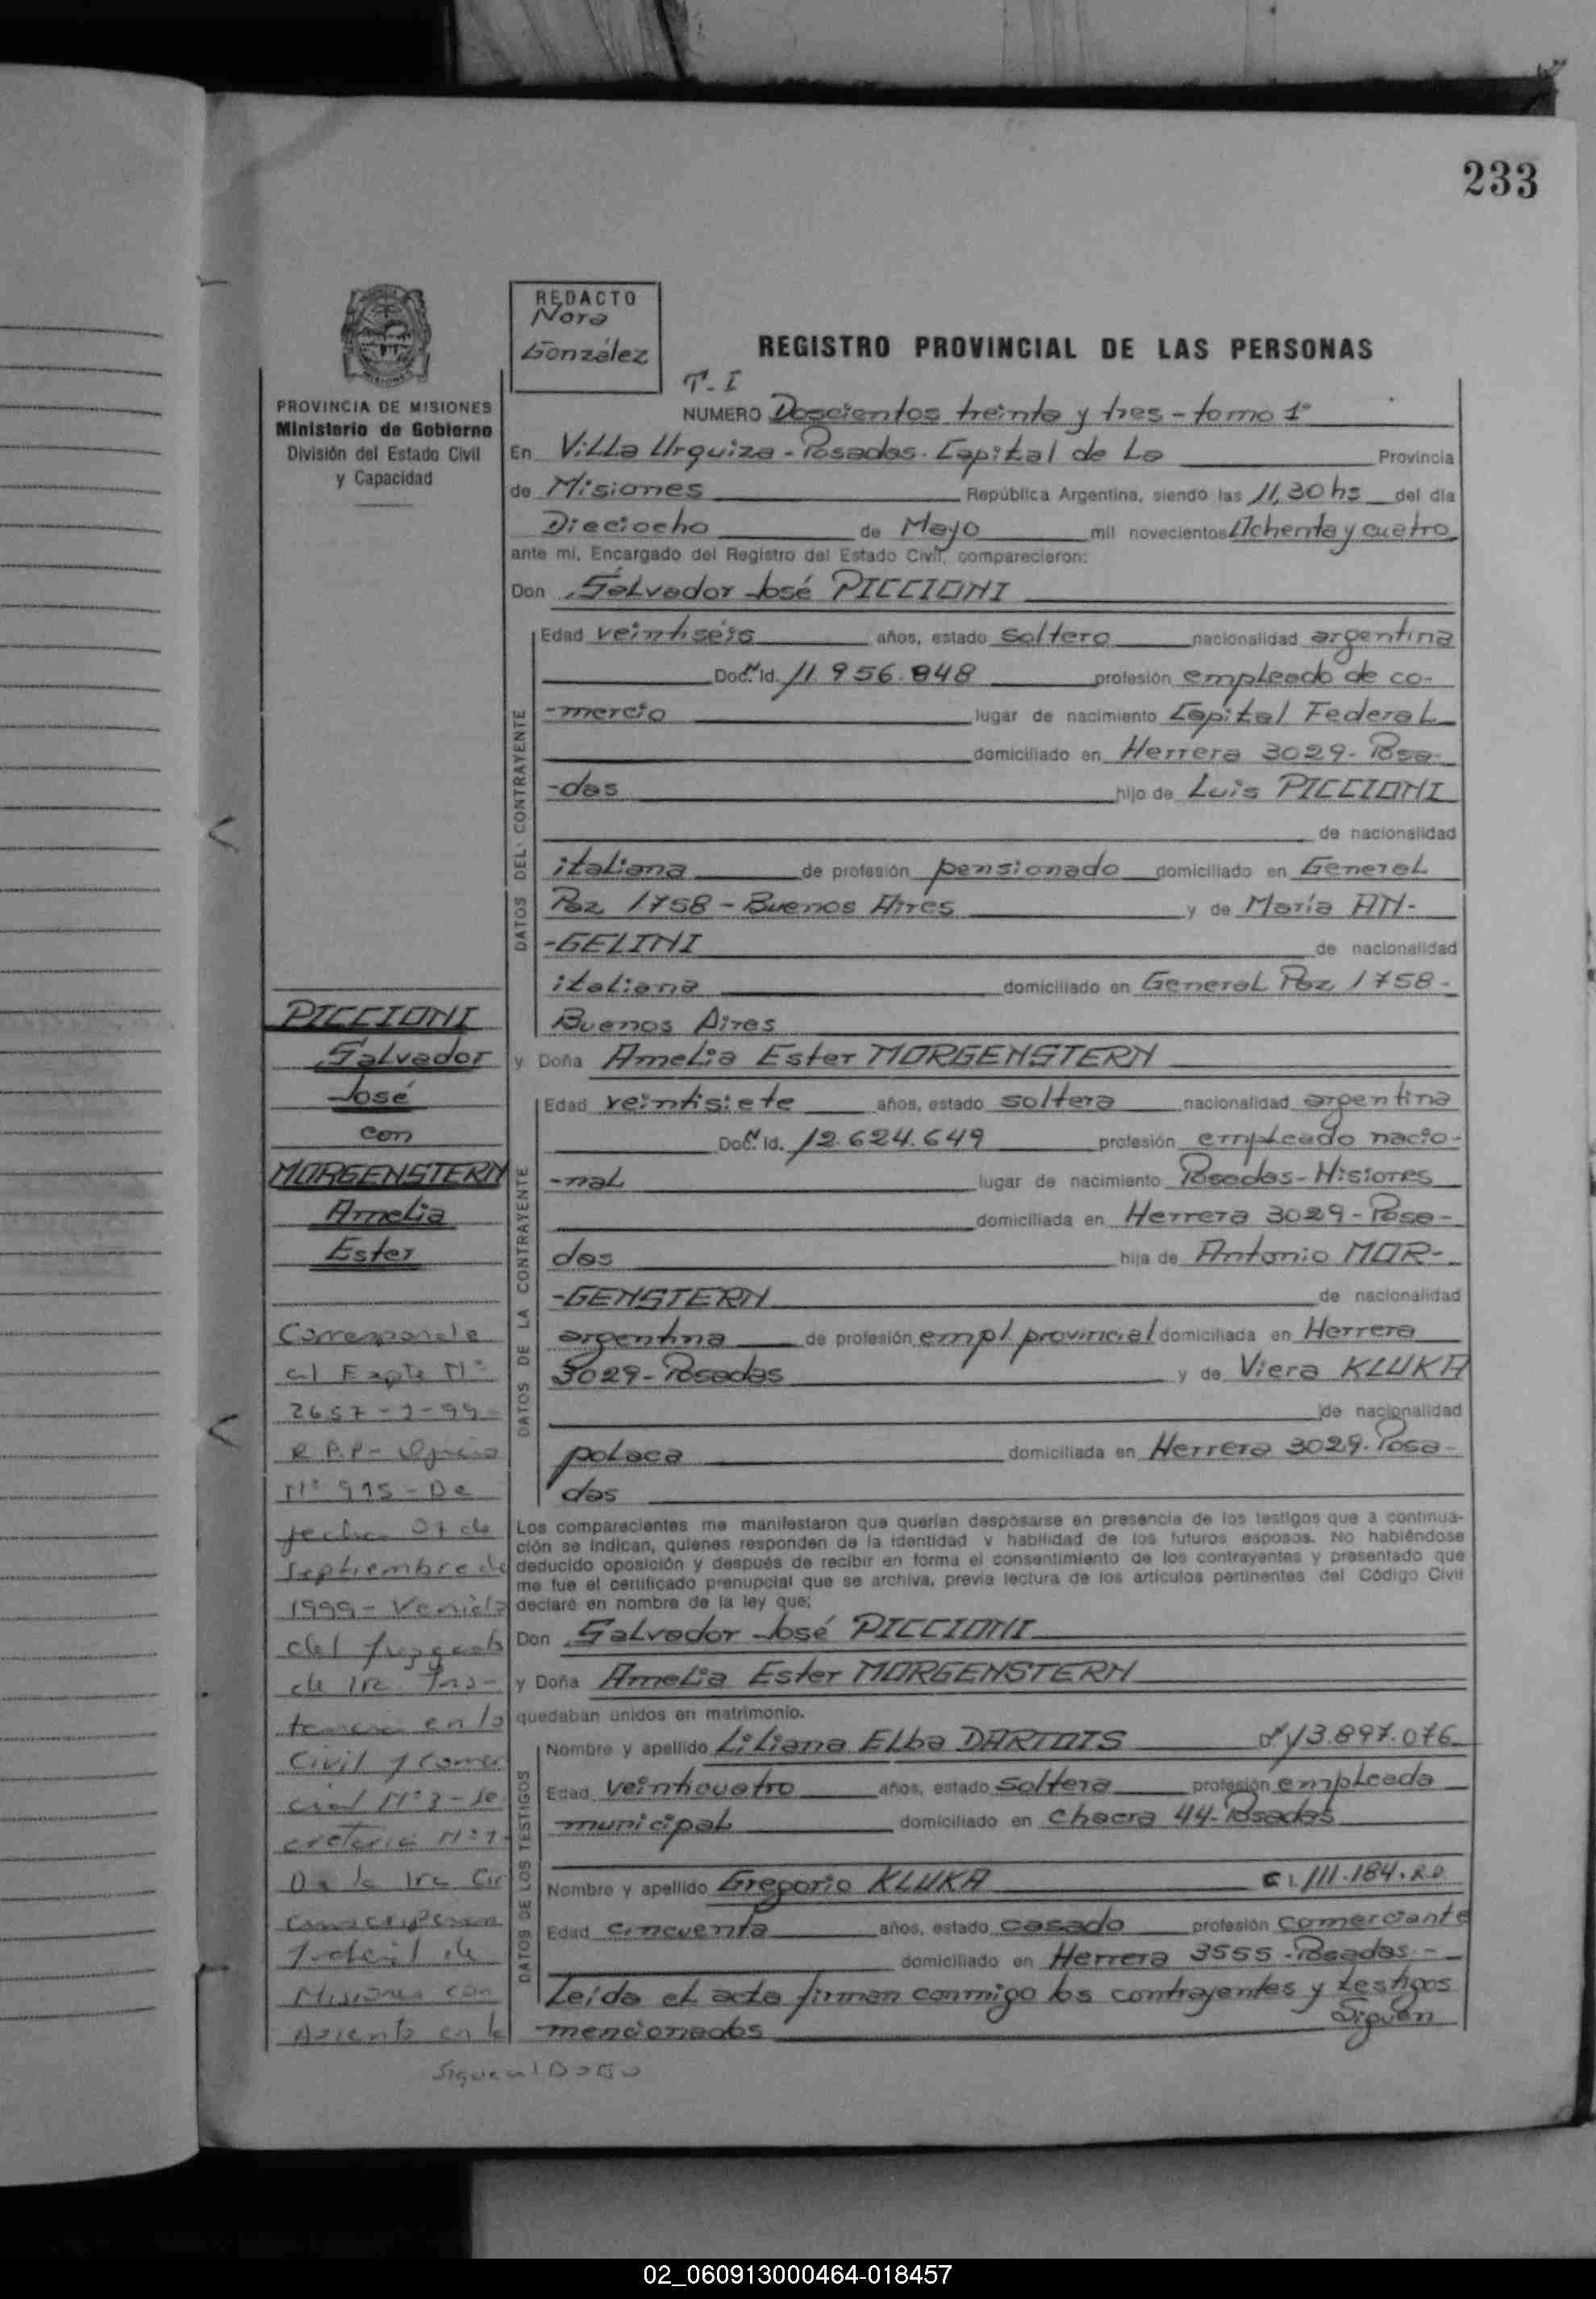 233
REDACTO
Nora
González
REGISTRO PROVINCIAL DE LAS PERSONAS
T. I
PROVINCIA DE MISIONES
Ministerio de Gobierno
División del Estado Civil
y Capacidad
NUMERO Doscientos treinta y tres - tomo 1º
En Villa Urquiza - Posadas - Capital de La Provincia
de Misiones República Argentina, siendo las 11,30 hs del día
Dieciocho de Mayo mil novecientos Ochenta y cuatro
ante mi, Encargado del Registro del Estado Civil, comparecieron:
Don Salvador José PICCIONI
DATOS DEL CONTRAYENTE
Edad veintiséis años, estado soltero nacionalidad argentina
Doc. Id. 11.956.848 profesión empleado de co-
-mercio lugar de nacimiento Capital Federal
domiciliado en Herrera 3029 - Posa-
-das hijo de Luis PICCIONI
de nacionalidad
italiana de profesión pensionado domiciliado en General
Paz 1758 - Buenos Aires y de María AN-
-GELINI de nacionalidad
italiana domiciliado en General Paz 1758 -
Buenos Aires
PICCIONI
Salvador
José
con
MORGENSTERN
Amelia
Ester
y Doña Amelia Ester MORGENSTERN
DATOS DE LA CONTRAYENTE
Edad veintisiete años, estado soltera nacionalidad argentina
Doc. Id. 12.624.649 profesión empleado nacio-
-nal lugar de nacimiento Posadas - Misiones
domiciliada en Herrera 3029 - Posa-
das hija de Antonio MOR-
-GENSTERN de nacionalidad
argentina de profesión empl. provincial domiciliada en Herrera
3029 - Posadas y de Viera KLUKA
de nacionalidad
polaca domiciliada en Herrera 3029 - Posa-
das
Corresponde
al Expte Nº
2657 - - 99 -
R.P.P -
Nº 995 - De
fecha 07 de
septiembre de
1999 - Venido
del Juzgado
de 1ra. Ins-
tancia en lo
Civil y Comer
cial Nº 3 - Se
cretaria Nº 1
De la 1ra Cir
cunscripcion
Judicial de
Misiones con
Asiento en la
Sigue al Dorso
Los comparecientes me manifestaron que querían desposarse en presencia de los testigos que a continua-
ción se indican, quienes responden de la identidad y habilidad de los futuros esposos. No habiéndose
deducido oposición y después de recibir en forma el consentimiento de los contrayentes y presentado que
me fue el certificado prenupcial que se archiva, previa lectura de los artículos pertinentes del Código Civil
declaré en nombre de la ley que:
Don Salvador José PICCIONI
y Doña Amelia Ester MORGENSTERN
quedaban unidos en matrimonio.
DATOS DE LOS TESTIGOS
Nombre y apellido Liliana Elba DARTOIS 13.897.076
Edad veinticuatro años, estado soltera profesión empleada
municipal domiciliado en Chacra 44 - Posadas
Nombre y apellido Gregorio KLUKA C.I. 111.184.
Edad cincuenta años, estado casado profesión comerciante
domiciliado en Herrera 3555 - Posadas -
Leída el acta firman conmigo los contrayentes y testigos
mencionados Siguen
02_060913000464-018457